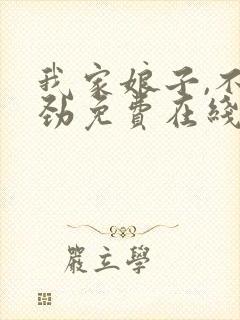 我家娘子,不
劲免费在线
嚴立學